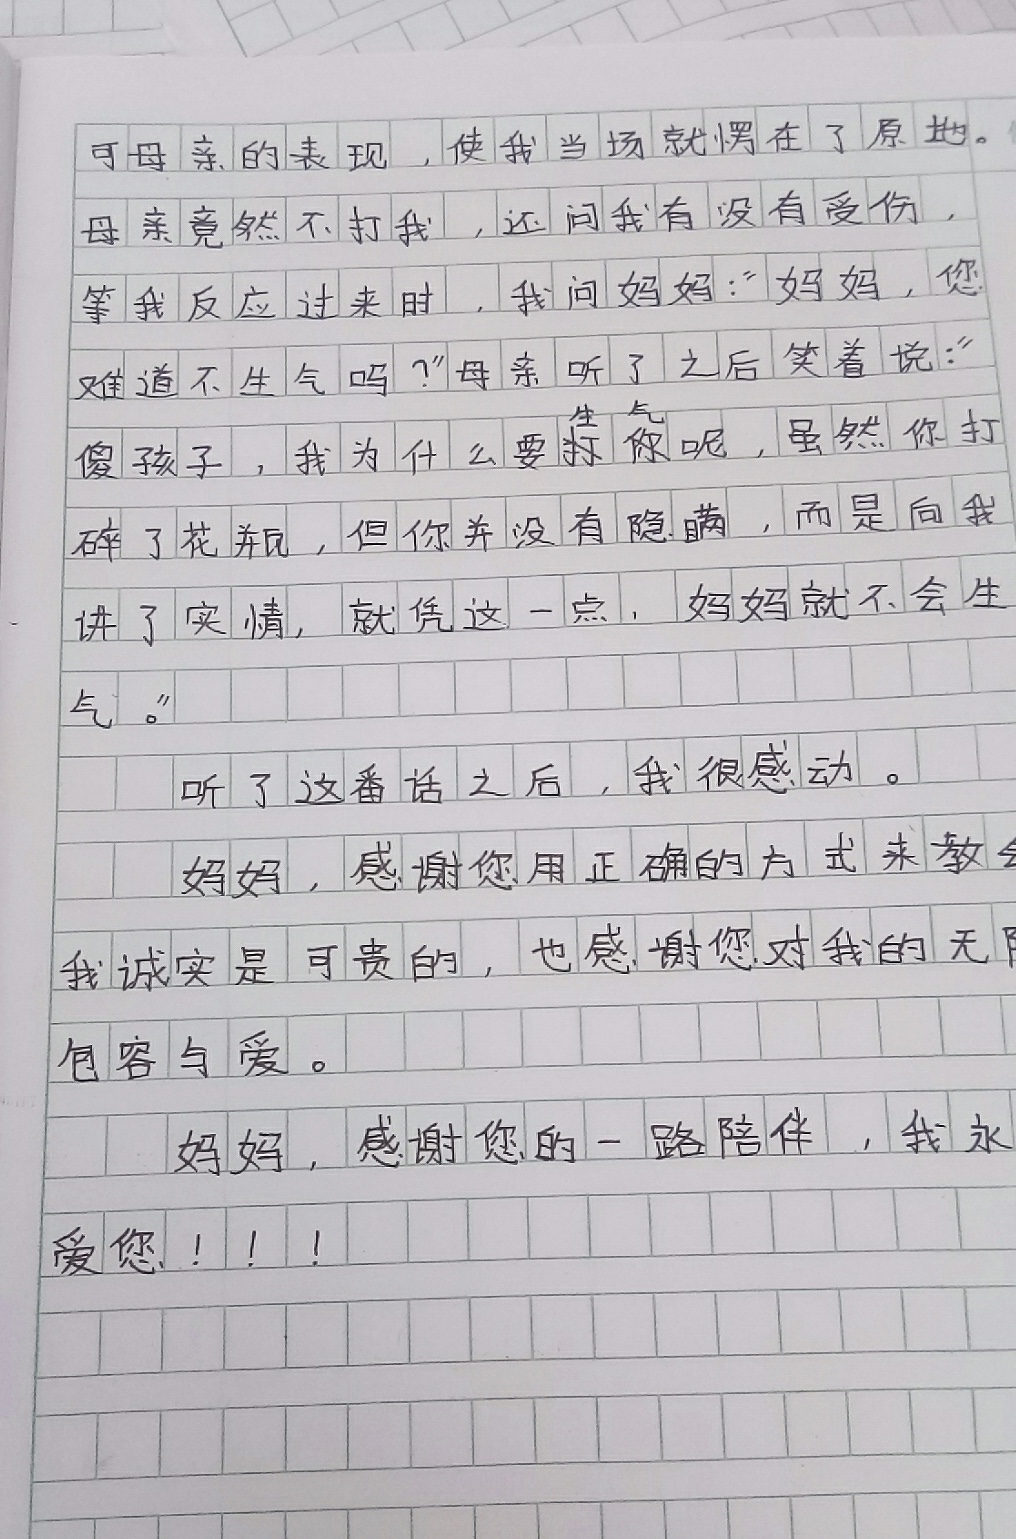 可母亲的表现，使我当场就愣在了原地。
母亲竟然不打我，还问我有没有受伤，
等我反应过来时，我问妈妈：“妈妈，您
难道不生气吗？”母亲听了之后笑着说：“
生气
傻孩子，我为什么要打你呢，虽然你打
碎了花瓶，但你并没有隐瞒，而是向我
讲了实情，就凭这一点，妈妈就不会生
气。”
听了这番话之后，我很感动。
妈妈，感谢您用正确的方式来教会
我诚实是可贵的，也感谢您对我的无限
包容与爱。
妈妈，感谢您的一路陪伴，我永
爱您！！！